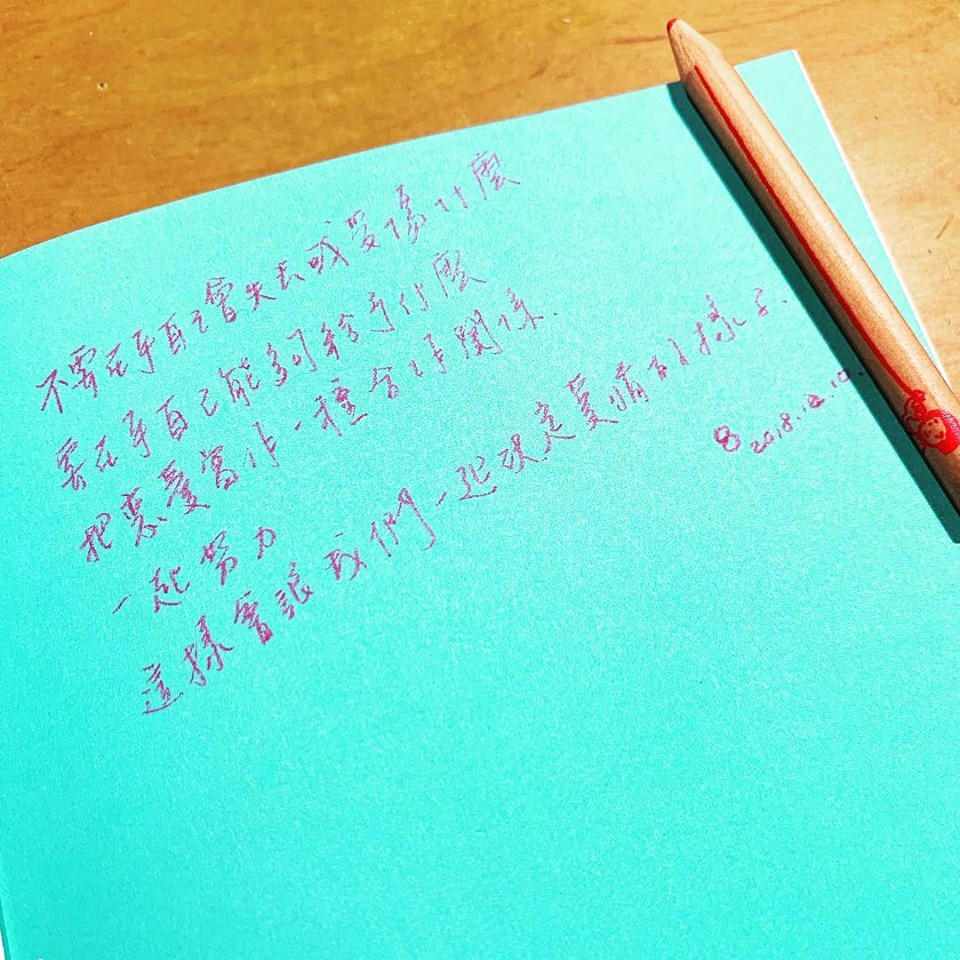 不要在乎自己會失去或受傷什麼
要在乎自己能夠給予什麼
把戀愛當作一種合作關係.
一起努力
這樣會讓我們一起決定愛情的樣子.
2018.12.10.